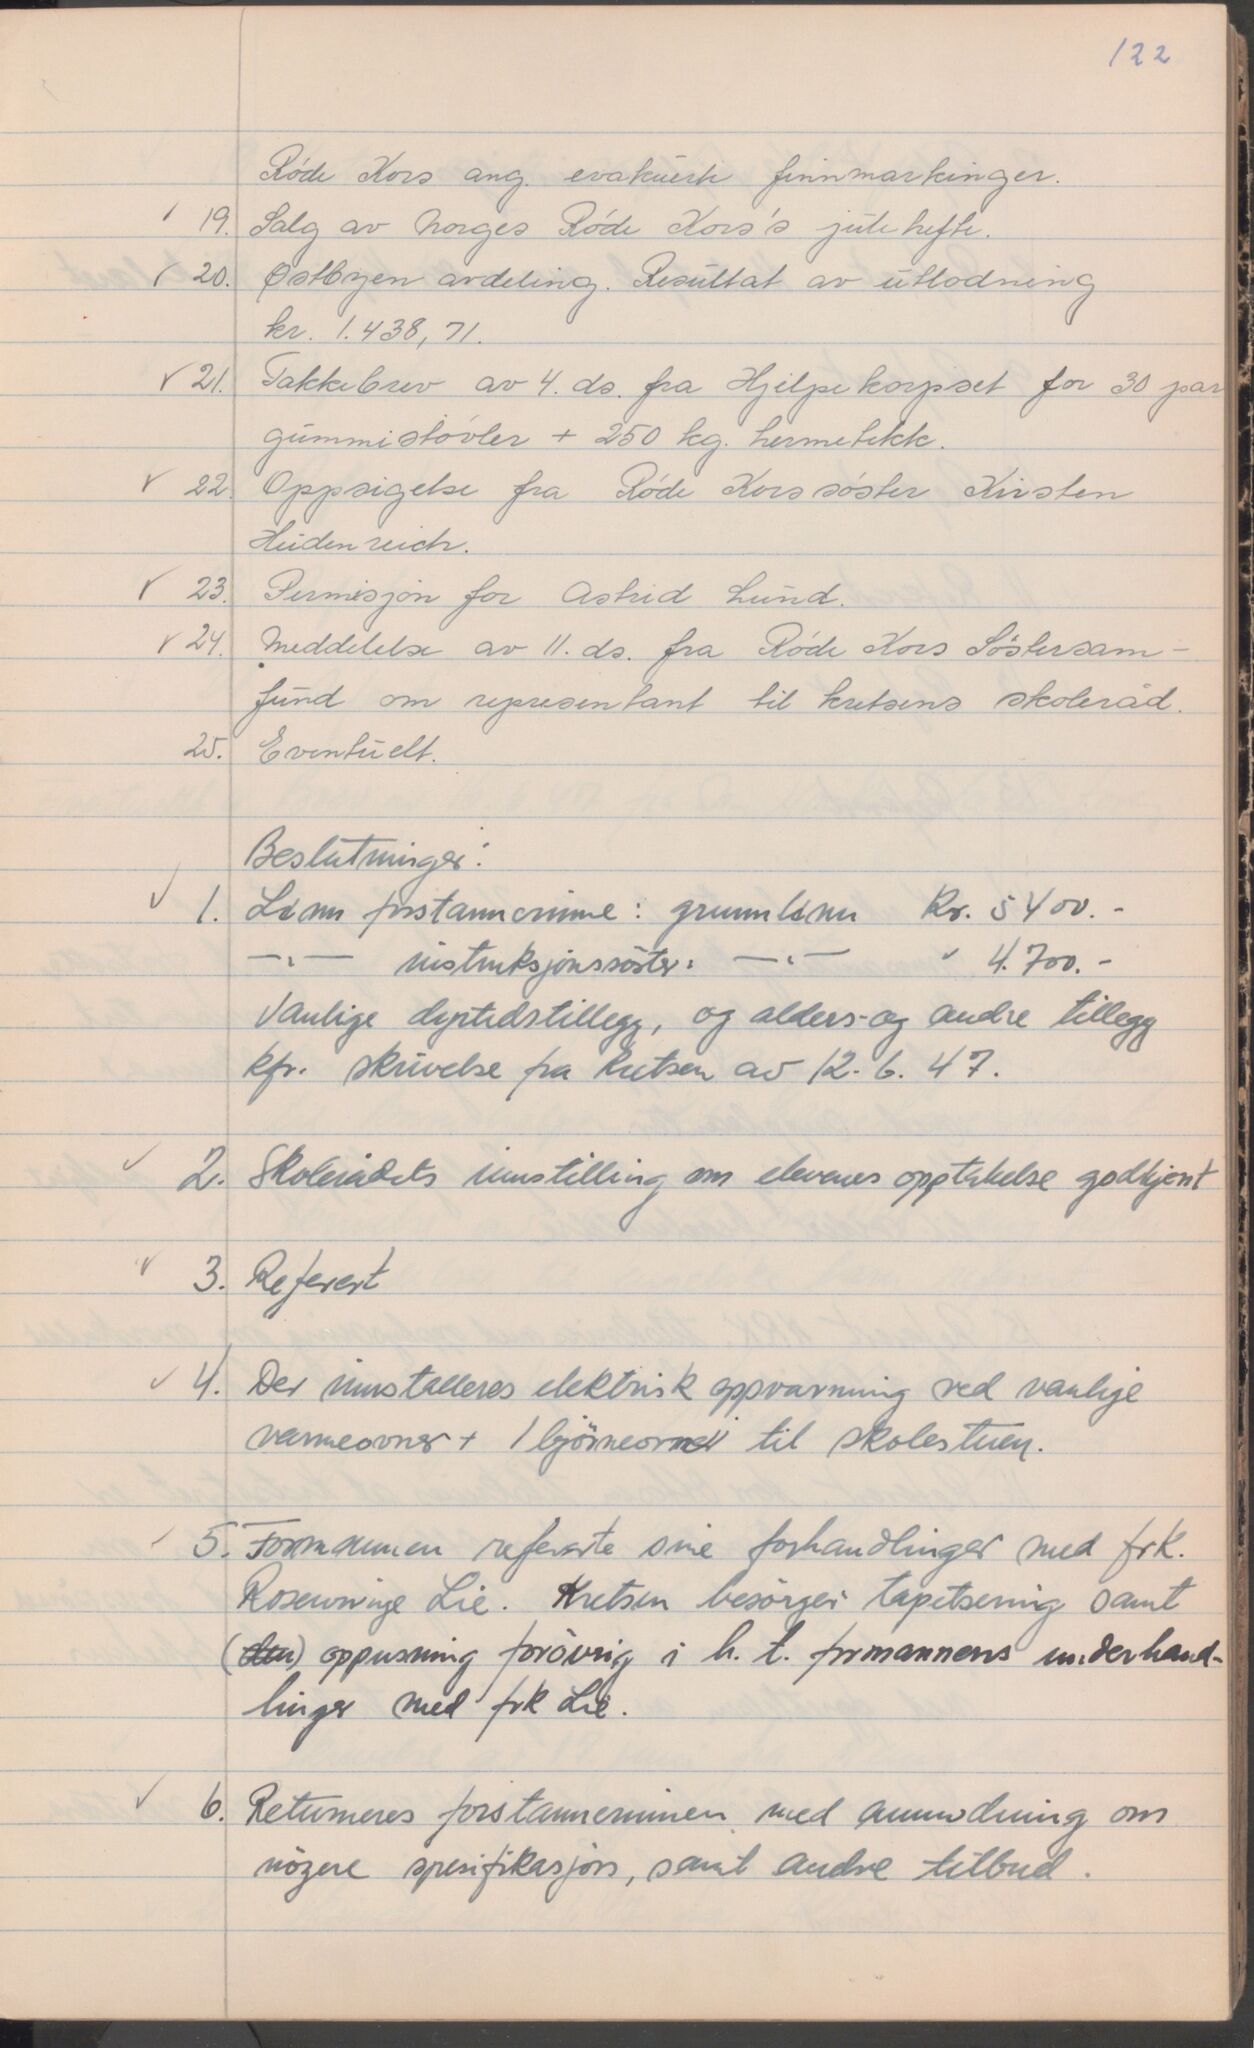 122
Røde Kors ang. evakuerte finnmarkinger.
19. Salg av Norges Røde Kors's julehefte.
20. Østbyen avdeling. Resultat av utlodning
kr. 1.438,71.
21. Takkebrev av 4. ds. fra Hjelpekorpset for 30 par
gummistøvler + 250 kg. hermetikk.
22. Oppsigelse fra Røde Korssøster Kirsten
Heidenreich.
23. Permisjon for Astrid Lund.
24. Meddelelse av 11. ds. fra Røde Kors Søstersam-
fund om representant til kretsens skoleråd.
25. Eventuelt.
Beslutninger:
1. Lønn forstannerinne: grunnlønn Kr. 5400.-
—"— instruksjonssöster: —"— " 4.700.-
Vanlige dyrtidstillegg, og alders- og andre tillegg
kfr. skrivelse fra kretsen av 12.6.47.
2. Skolerådets innstilling om elevenes opptakelse godkjent
3. Referert
4. Der innstalleres elektrisk oppvarming ved vanlige
varmeovner + 1 björneovn til skolestuen.
5. Formannen refererte sine forhandlinger med frk.
Rosenvinge Lie. Kretsen besörger tapetsering samt
(den) oppussning forövrig i h. t. formannens underhand-
linger med frk Lie.
6. Returneres forstannerinnen med anmodning om
nögere spesifikasjon, samt andre tilbud.